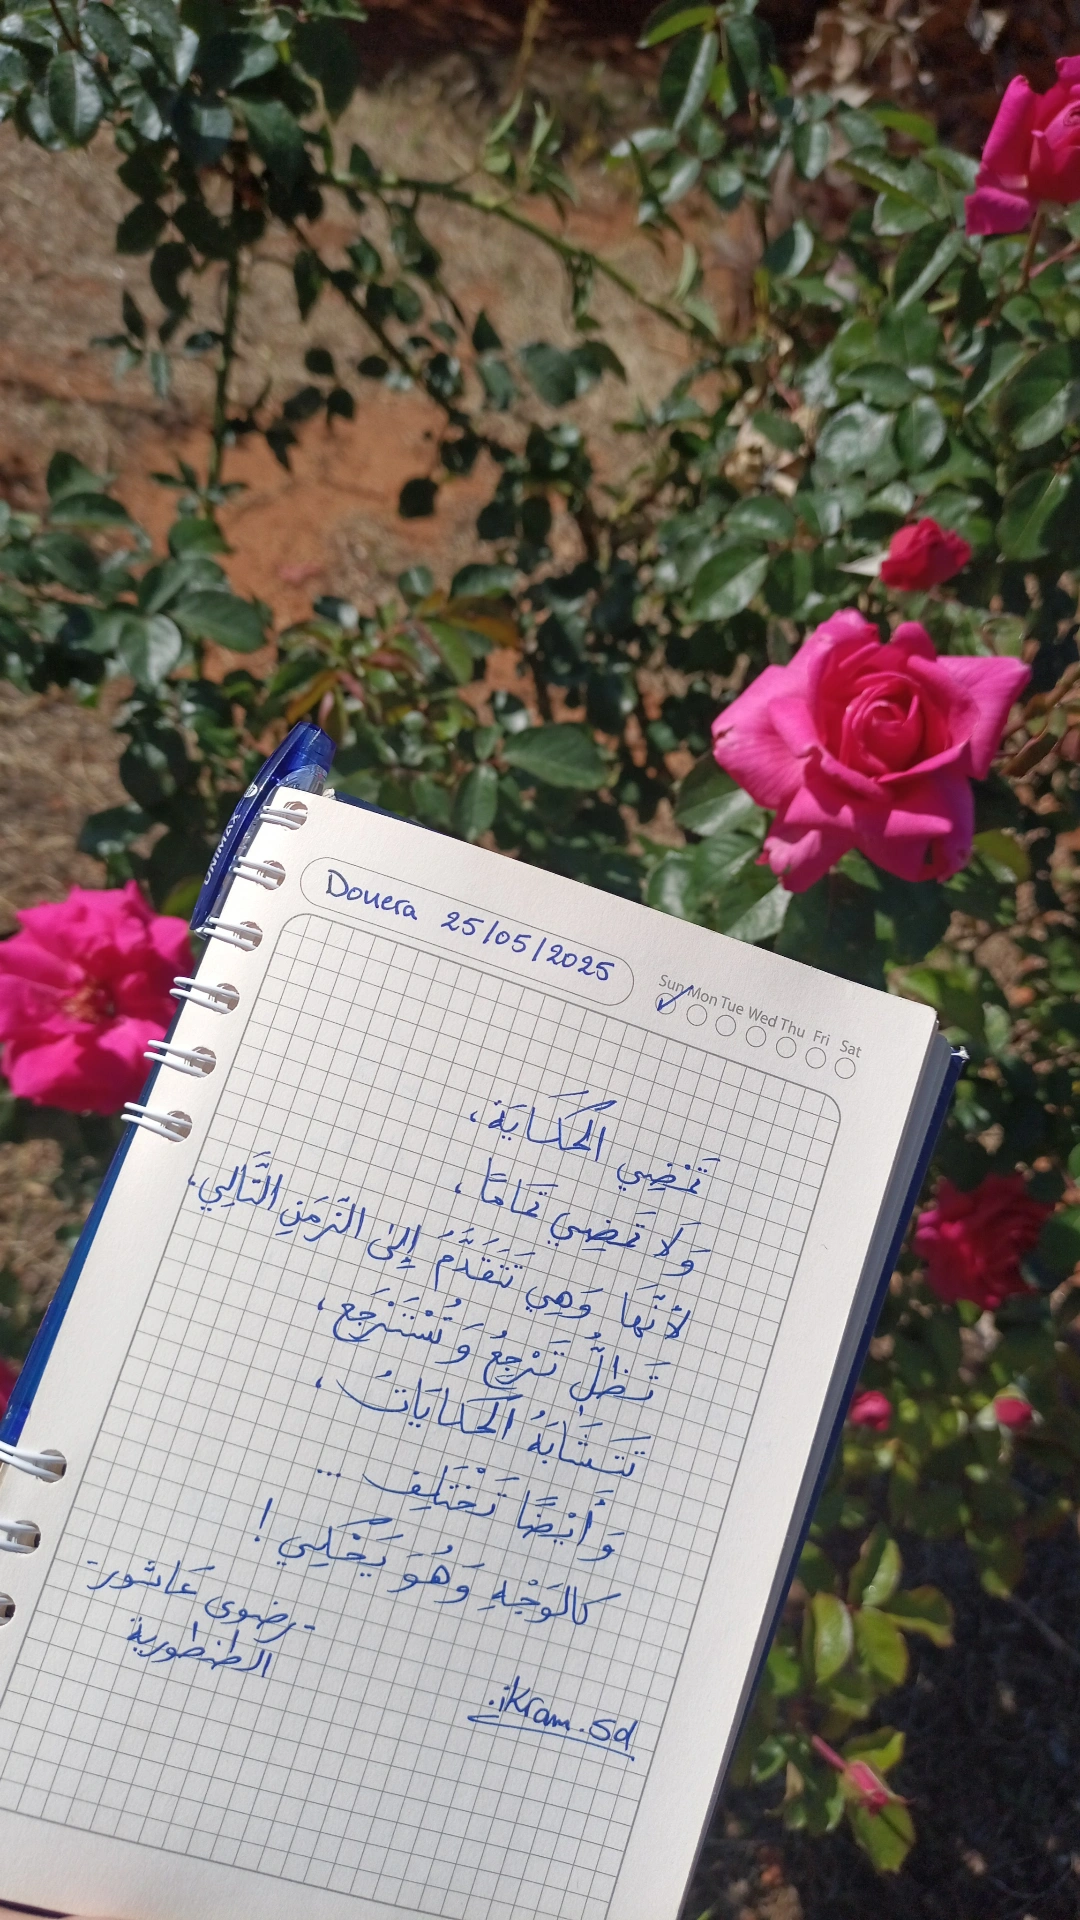 UNIMAX
Douera 25/05/2025
Sun Mon Tue Wed Thu Fri Sat
تَمْضِي الحِكَايَة،
وَلَا تَمضِي تَمَامًا،
لأنَّهَا وَهِي تَتَقَدَّمُ إِلَى الزَّمَنِ التَّالِي.
تَظَلُّ تَرْجِعُ وَ تُسْتَرْجَع،
تَتَشَابَهُ الحكَايَاتُ،
وَ أَيْضًا تَخْتَلِف ...
كَالوَجْهِ وَهُوَ يَحْكِي !
- رضوى عَاشور -
الطنطورية
ikram.sd